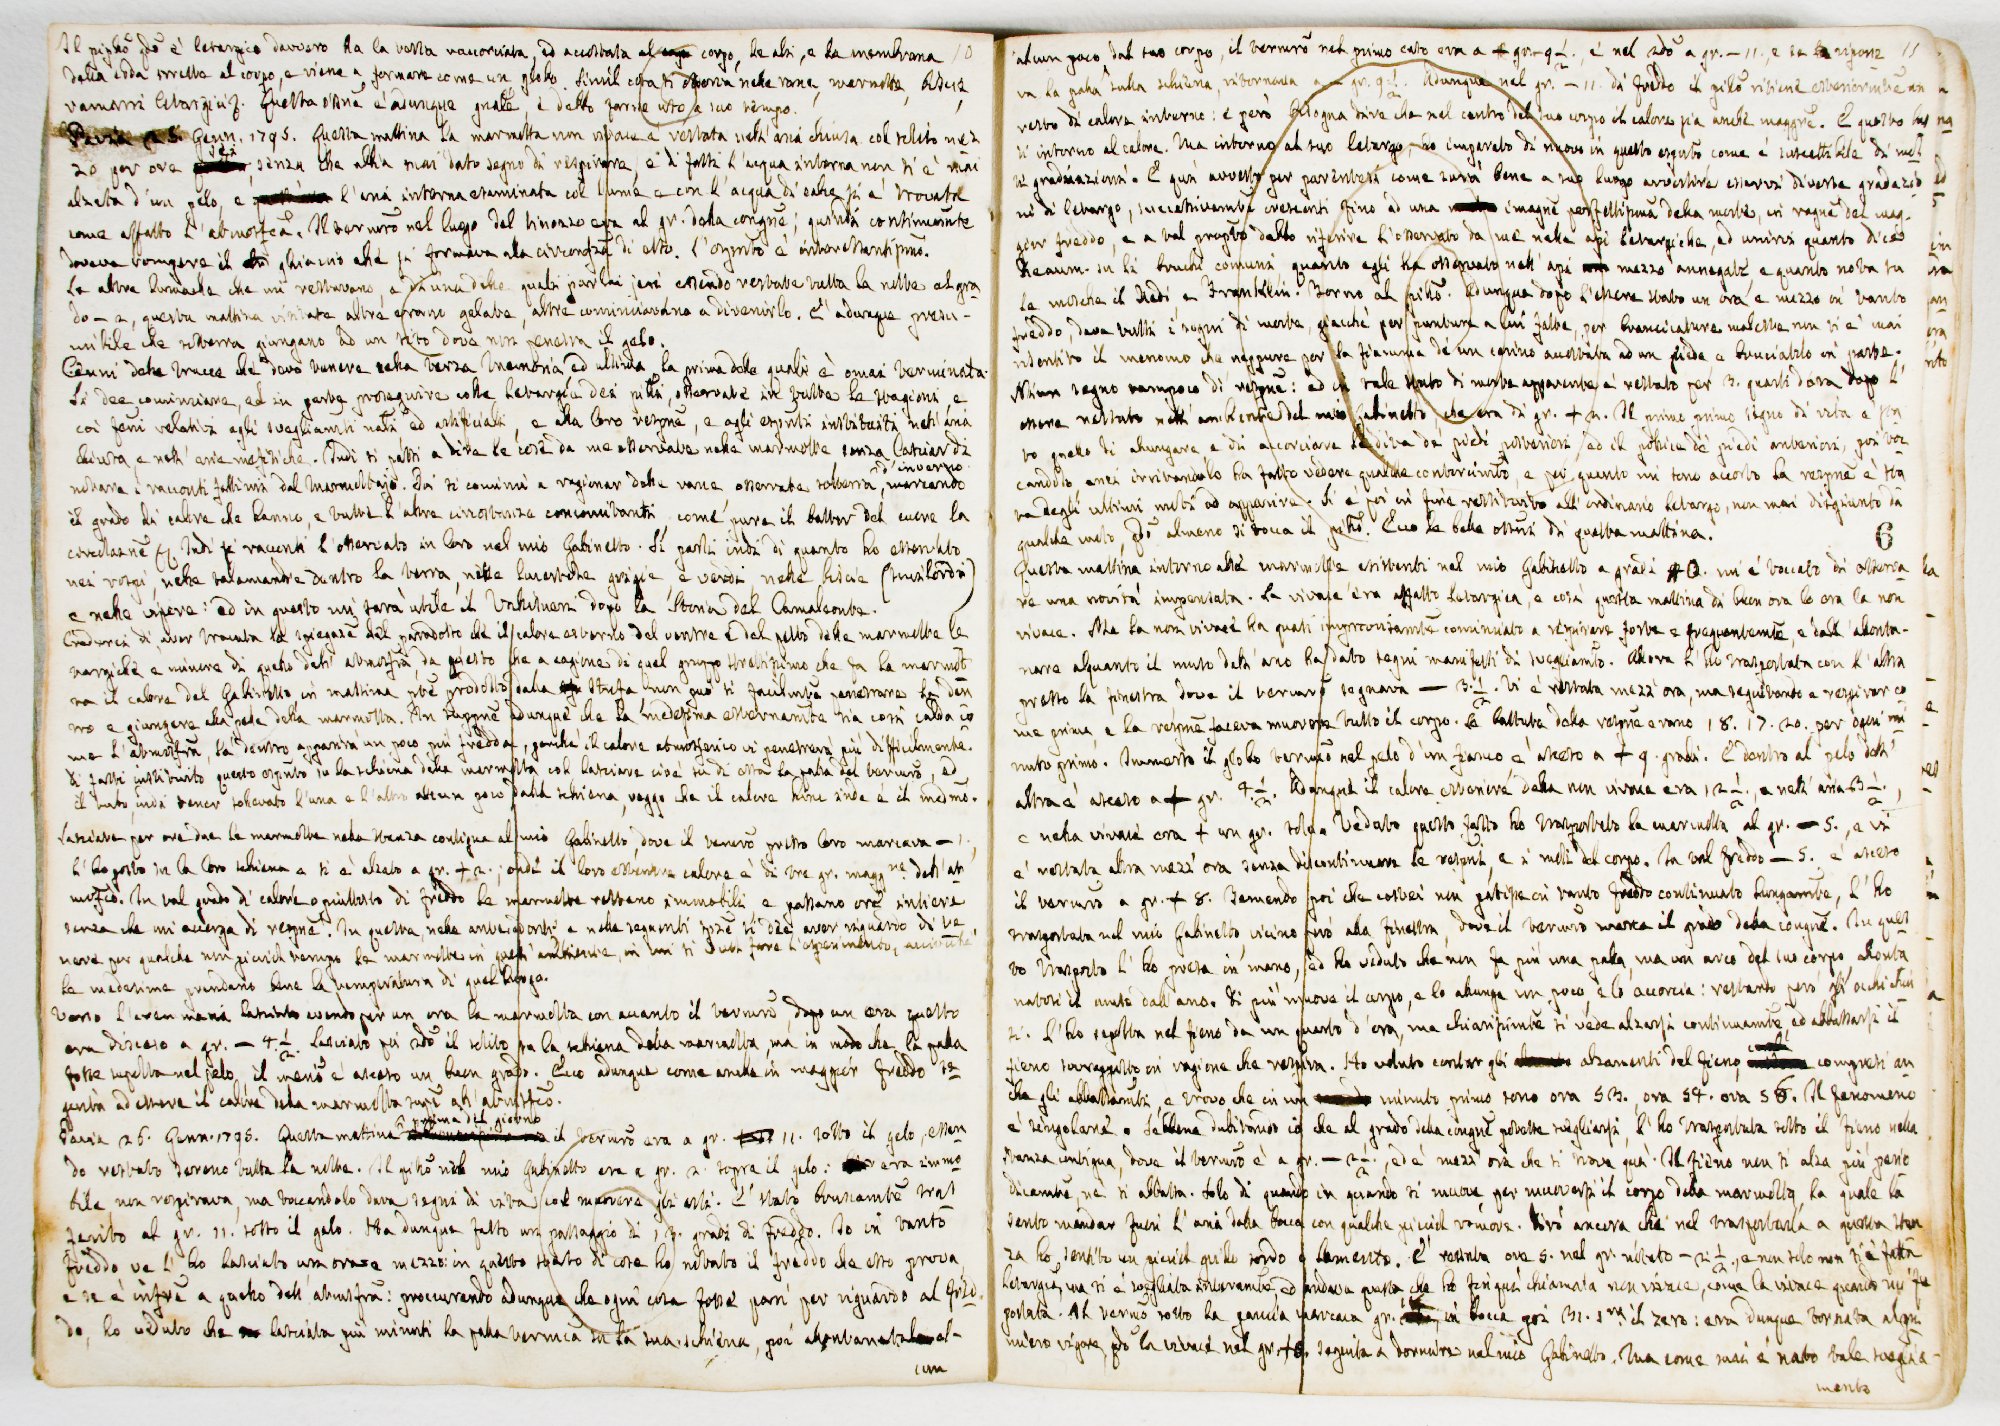 Il pighō qdō è letargico davvero ha la testa raccorciata, ed accostata al corpo, le ali, e la membrana 10
della coda stretta al corpo, e viene a formare come un globo. Simil cosa si osserva nelle rane, marmotte, bisce,
ramarri letargici. Questa è adunque e debbo farne uso a suo tempo.
Pavia 25. Genn. 1795. Questa mattina la marmotta non vivace è restata nell'aria chiusa col solito
20 per ore senza che abbia mai dato segno di respirare, e di fatti l'acqua interna non si è mai
alzata d'un pelo, e l'aria interna esaminata col lume e con l'acqua di calce si è trovata
come affatto l'atmosfca. Il termrō nel luogo del era al gr. della congne; quindi continuamte
doveva rompere il ghiaccio che si formava alla circonfza di esso. L'esprto è interessantissmo.
Le altre lumache che mi restavano, e di una delle quali parlai jeri essendo restate tutta la notte al gra
do – 2, questa mattina visitate altre erano gelate, altre cominciavano a divenirlo. E' adunque presu-
mibile che sotterra giungano ad un sito dove non penetra il gelo.
Cenni delle tracce che devo tenere nella terza Memoria ed ultima, la prima delle quali è omai terminata.
Si dee cominciare, ed in parte proseguire colle letargie dei , osservate in tutte le stagioni, e
coi fenni relativi agli svegliamti natli ed artificiali, e alla loro respne, e agli esprti instituiti nell'aria
chiusa, e nell'arie mefitiche. Indi si passi a dire le cose da me osservate nelle marmotte senza lasciar di
notare i racconti fattimi dal Marmottajo. Poi si cominci a ragionar delle rane osservate sotterra d'inverno, marcando
il grado di calore che hanno, e tutte l'altre circostanze concomitanti, come pure il batter del cuore la
circolazne &c. Indi si racconti l'osservato in loro nel mio Gabinetto. Si parli indi di quanto ho osservato
nei rospi, nelle salamandre dentro la terra, nelle lucertole grigie, e verdi nelle biscie
e nelle vipere: ed in questo mi sarà utile il Valisneri dopo la Storia del Camaleonte.
Crederei di aver trovata la spiegazne del paradosso che il calore esterno del ventre e del petto delle marmotte le
targiche è minore di quello dell'atmosfra, da questo che a cagione di quel gruppo strettissimo che fa la marmot
ta il calore del Gabinetto in mattina pte prodotto dalla Stufa non può sì facilmte penetrare là den
tro e giungere alla pelle della marmotta. In suppne adunque che la medesima esternamte sia così calda co
me l'atmosfra, là dentro apparirà un poco più fredda, perchè il calore atmosferico vi penetrerà più difficilmente.
Di fatti instituito questo esprto su la schiena della marmotta col lasciare cioè sù di essa la palla del termrō, ed
il tubo, indi tener sollevato l'una e l'altro alcun poco dalla schiena, veggo che il calore hinc inde è il medmo.
Lasciate per ore due le marmotte nella stanza contigua al mio Gabinetto, dove il termrō presso loro marcava – 1.,
l'ho posto su la loro schiena e si è alzato a gr. + 2.; onde il loro esterno calore è di tre gr. maggne dell'at
mosfco. In tal grado di calore o piuttosto di freddo le marmotte restano immobili e passano ore intiere
senza che mi accorga di respne. In questa, nelle antecedenti e nelle seguenti sprze si dee aver riguardo di te
nere per qualche non picciol tempo le marmotte in quell'ambiente, in cui si vuol fare l'esperimento, acciocchè
le medesime prendano bene la temperatura di quel luogo.
Verso l'avemaria lasciato avendo per un'ora la marmotta con accanto il termrō, dopo un'ora questo
era disceso a gr. – 4 ½. Lasciato poi qdō il solito su la schiena della marmotta, ma in modo che la palla
fosse sepolta nel pelo, il merrō è asceso un buon grado. Ecco adunque come anche in maggior freddo se
guita ad essere il calore della marmotta supre all'atmosfco.
Pavia 26. Genn. 1795. Questa mattina prima del giorno il termrō era a gr. 11. sotto il gelo, essen
do restato sereno tutta la notte. Il pighō nel mio Gabinetto era a gr. 2. sopra il gelo: era immo
bile non respirava, ma toccandolo dava segni di vita col muovere gli arti. E' stato bruscamte tras
ferito al gr. 11. sotto il gelo. Ha dunque fatto un passaggio di 13. gradi di freddo. Io in tanto
freddo ve l'ho lasciato un'ora e mezzo: in questo stato di cose ho notato il freddo che esso prova
e se è infre a quello dell'atmosfra: procurando adunque che ogni cosa fosse pari per riguardo al freddo,
do, ho veduto che lasciata più minuti la palla termica su la sua schiena, poi allontanatala al-
cun
alcun poco dal suo corpo, il termrō nel primo caso era a gr. – 9 ½., e nel 2do a gr. – 11., e se si ripone 11
va la palla sulla schiena, ritornava a – gr. 9 ½. Adunque nel gr. – 11. di freddo il pighō ritiene esteriormte un
resto di calore interno: e però bisogna dire che nel centro del suo corpo il calore sia anche maggre. E questo
si intorno al calore. Ma intorno al suo letargo, ho imparato di nuovo in questo esprto come è suscettibile di mol
te graduazioni. E qui avverto per parentesi come sarà bene a suo luogo avvertire esservi diverse gradazio
ni di letargo, successivamte crescenti fino ad una imagne perfettissima della morte, in ragne del mag-
gior freddo, e a tal proposto debbo riferire l'osservato da me nelle api letargiche, ed unirvi quanto dice
Reaum. su li bruchi comuni, quanto egli ha osservato nell'api mezzo annegate, e quanto nota su
le mosche il Redi, e Franklin. Torno al . Adunque dopo l'essere stato un'ora e mezzo in tanto
freddo, dava tutti i segni di morte, giacchè per punture a lui fatte, per brancicature molestre non si è mai
risentito il menomo che neppure per la fiamma di un cerino accostata ad un piede e bruciatolo in parte.
Niun segno tampoco di respne: ed in tale stato di morte apparente è restato per 3. quarti d'ora dopo l'
essere restato nell'ambiente del mio Gabinetto che era di gr. + 2. Il primo primo segno di vita è sta
to quello di allungare e di accorciare le dita de' piedi posteriori, ed il pollice de' piedi anteriori, poi toc
candolo anzi irritandolo ha fatto vedere qualche contorcimto, e poi quanto mi sono accorto la respne è sta
ta degli ultimi moti ad apparire. Si è poi in fine restituito all'ordinario letargo, non mai disgiunto da
qualche moto, qdō almeno si tocca il . Ecco le belle ossni di questa mattina.
6
Questa mattina intorno alle marmotte esistenti nel mio Gabinetto a gradi 0. mi è toccato di osserva
re una novità impensata. La vivace era affatto letargica, e così questa mattina di buon'ora lo era la non
vivace. Ma la non vivace ha quasi improvvisamte cominciato a respirare forte e frequentemte, e dall'allonta-
nare alquanto il muso dall'ano ha dato segni manifesti di svegliamto. Allora l'ho trasportata con l'altra
presso la finestra dove il termrō segnava — 3 ½. Vi è restata mezz'ora, ma seguitando a respirar co
me prima, e la respne faceva muovere tutto il corpo. Le battute della respne erano 18. 17. 20. per ogni mi
nuto primo. Immerso il globo termico nel pelo d'un fianco è asceso a + 9. gradi. E dentro al pelo dell'
altra è asceso a + gr. 4 ½. Adunque il calore esteriore della non vivace era 12 ½., e nell'aria – 3 ½.,
e nella vivace era + un gr. solo. Veduto questo fatto ho trasportato la marmotta al gr. — 5., e vi
è restata altra mezz'ora senza discontinuare le respni, e i moti del corpo. In tal freddo — 5. è asceso
il termrō a gr. + 8. Temendo poi che costei non patisse in tanto freddo continuato lungamte, l'ho
trasportata nel mio Gabinetto, vicino però alla finestra, dove il termrō marca il grado della congne. In quel
to trasporto l'ho presa in mano, ed ho veduto che non fa più una palla, ma un arco del suo corpo allonta
natosi il muso dall'ano. Di più muove il corpo, e lo allunga un poco, e lo accorcia: restando però gli occhi chiu
si. L'ho sepolta nel fieno da un quarto d'ora, ma chiarissimte si vede alzarsi continuamte, ed abbassarsi il
fieno sovrapposto in ragione che respira. Ho voluto contar gli alzamenti del fieno, compresi an
che gli abbassamti, e trovo che in un minuto primo sono ora 53., ora 54. ora 56. Il fenomeno
è singolare. Sebbene dubitando io che al grado della congne potesse svegliarsi, l'ho trasportata sotto il fieno nella
stanza contigua, dove il termrō è a gr. — 2 ½., ed è mezz'ora che si trova quà. Il fieno non si alza più perio
dicamte, nè si abbassa. Solo di quando in quando si muove per muoversi il corpo della marmotta, la quale la
sento mandar fuori l'aria dalla bocca con qualche picciol romore. Dirò ancora che nel trasportarla a questa stan
za ho sentito un picciol grido sordo o lamento. E' restata ore 5. nel gr. notato – 2 ½., e non solo non si è fatta
letargica, ma si è svegliata interamte, ed andava questa che ho fin qua chiamata non vivace, come la vivace quando mi fu
portata. Al termrō sotto la pancia marcava gr. , in bocca poi 31. sopra il zero: era dunque tornata al pri
miero vigore, qdō la vivace nel gr. + 8. seguita a dormire nel mio Gabinetto. Ma come mai è nato tale sveglia-
mento